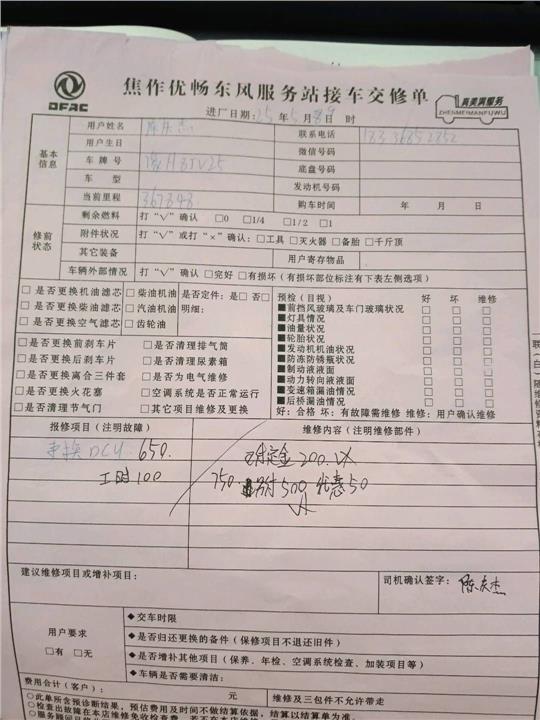 DFAC
焦作优畅东风服务站接车交修单
真美满服务
ZHENMEIMANFUWU
进厂日期：25年5月 日 时
基本信息
用户姓名 陈庆杰 联系电话
用户生日 微信号码
车牌号 豫HBJV25 底盘号码
车型 发动机号码
当前里程 367848 购车时间 年 月 日
修前状态
剩余燃料 打“√”确认 □0 □1/4 □1/2 □1
附件状况 打“√”或打“×”确认：□工具 □灭火器 □备胎 □千斤顶
其它装备 用户寄存物品
车辆外部情况 打“√”确认 □完好 □有损坏(有损坏部位标注有下表左侧选项)
□是否更换机油滤芯 □柴油机油 是否定件：是□ 否□
□是否更换柴油滤芯 □汽油机油 明细：
□是否更换空气滤芯 □齿轮油
□是否更换前刹车片 □是否清理排气筒
□是否更换后刹车片 □是否清理尿素箱
□是否更换离合三件套 □是否为电气维修
□是否更换火花塞 □空调系统是否正常运行
□是否清理节气门 □其它项目维修及更换
预检(目视) 好 坏 维修
■前挡风玻璃及车门玻璃状况 □ □ □
■灯具情况 □ □ □
■油量状况 □ □ □
■轮胎状况 □ □ □
■发动机机油状况 □ □ □
■防冻防锈瓶状况 □ □ □
■制动液液面 □ □ □
■动力转向液液面 □ □ □
■变速箱漏油情况 □ □ □
■后桥漏油情况 □ □ □
好：合格 坏：有故障需维修 维修：用户确认维修
报修项目(注明故障) 维修内容(注明维修部件)
更换DCU 650. 付定金200.
工时100 750. 另付500 优惠50
建议维修项目或增补项目：
司机确认签字：陈庆杰
用户要求
□有 □无
◆交车时限
◆是否归还更换的备件(保修项目不退还旧件)
◆是否增补其他项目(保养、年检、空调系统检查、加装项目等)
◆车辆是否需要清洁：
费用合计(客户)： 元 维修及三包件不允许带走
○此单所含预诊断结果，预估费用及时间不做结算依据，结算以结算单为准。